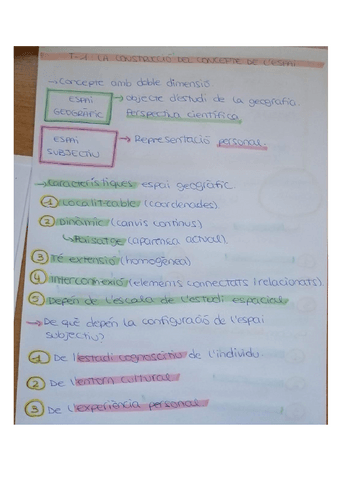 T-2: LA CONSTRUCCIÓ DEL CONCEPTE DE L'ESPAI
→ Concepte amb doble dimensió.
ESPAI GEOGRÀFIC → objecte d'estudi de la geografia. Perspectiva científica.
ESPAI SUBJECTIU → Representació personal.
→ Característiques espai geogràfic
1 Localitzable (coordenades).
2 Dinàmic (canvis continus)
↳ Paisatge (aparença actual).
3 Té extensió (homogènea)
4 Interconnexió (elements connectats i relacionats)
5 Depèn de l'escala de l'estudi espacial
→ De què depèn la configuració de l'espai subjectiu?
1 De l'estadi cognoscitiu de l'individu.
2 De l'entorn cultural
3 De l'experiència personal